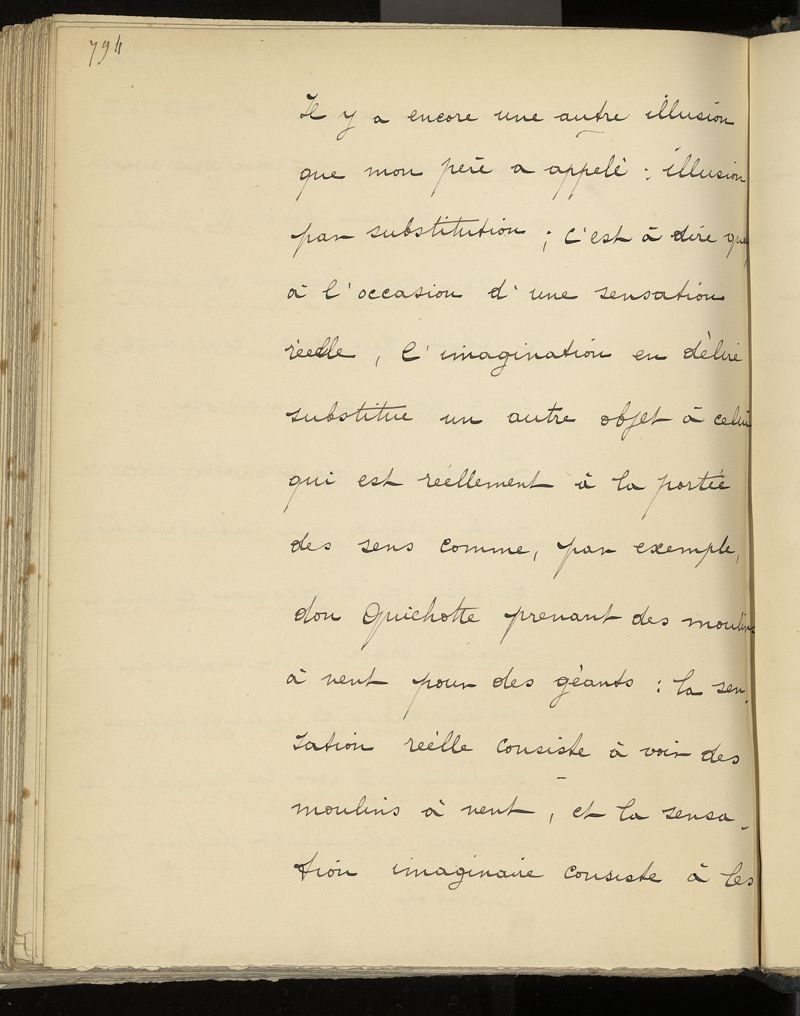 794
Il y a encore une autre illusion
que mon père a appelé : illusion
par substitution ; c'est à dire que,
à l'occasion d'une sensation
réelle, l'imagination en délire
substitue un autre objet à celui
qui est réellement à la portée
des sens comme, par exemple,
don Quichotte prenant des moulins
à vent pour des géants : la sen-
sation réelle consiste à voir des
moulins à vent, et la sensa-
tion imaginaire consiste à les